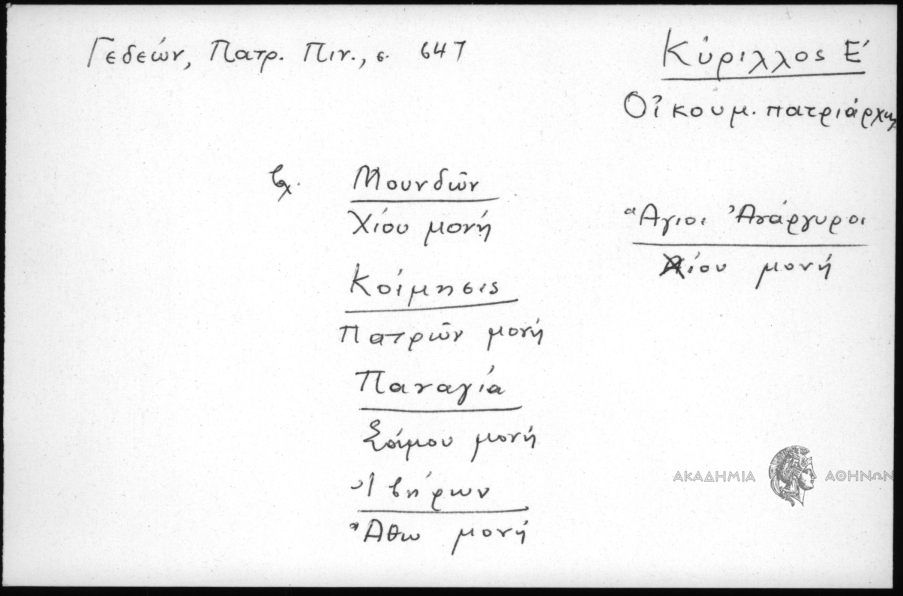 Γεδεών, Πατρ. Πιν., σ. 647
Κύριλλος Ε΄
Οἰκουμ. πατριάρχης
βχ. Μουνδῶν
Χίου μονή
Κοίμησις
Πατρῶν μονή
Παναγία
μονή
Ἰβήρων
Ἄθω μονή
Ἅγιοι Ἀνάργυροι
Χίου μονή
ΑΚΑΔΗΜΙΑ ΑΘΗΝΩΝ